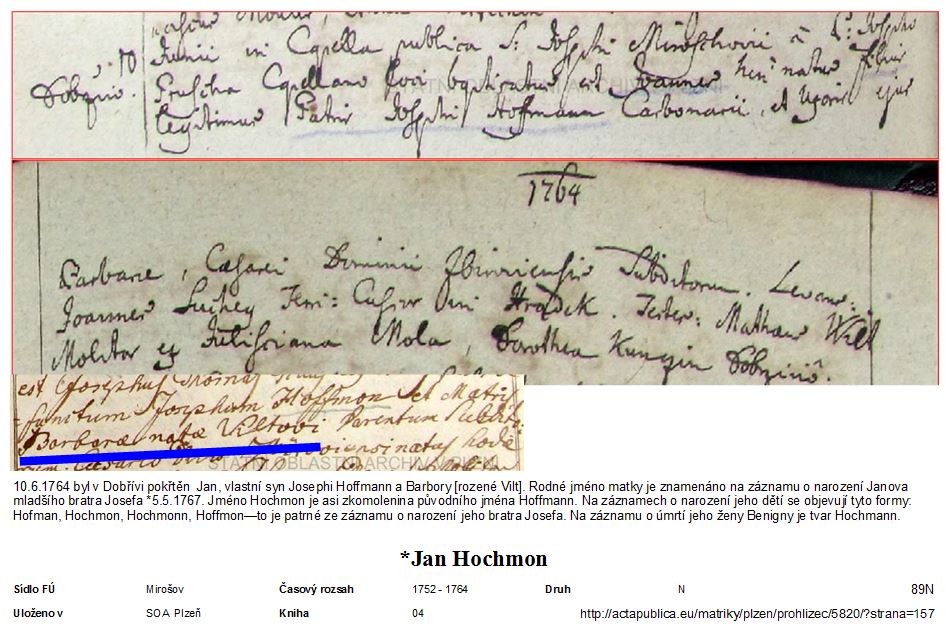 10
Junii in Capella publica S: Josephi Miroschovii à P: Josepho
Dobrziv. Capellano loci baptizatus est Joannes heri natus filius
legitimus Patris Josephi Hoffmann Carbonarii, et Uxoris ejus
1764
Barbarae, Caesarei Dominii Zbiroviensis Subditorum. Levans:
Joannes Suchey Hradek. Testes: Mathaeus Wilt
Molitor ex Mola, Dorothea Dobrziv.
est Josephus Thomas
Josephum Hoffmon et Matri
Barbara nata Viltovi Parentum
STÁTNÍ OBLASTNÍ ARCHIV V PLZNI
10.6.1764 byl v Dobřívi pokřtěn Jan, vlastní syn Josephi Hoffmann a Barbory [rozené Vilt]. Rodné jméno matky je znamenáno na záznamu o narození Janova
mladšího bratra Josefa *5.5.1767. Jméno Hochmon je asi zkomolenina původního jména Hoffmann. Na záznamech o narození jeho dětí se objevují tyto formy:
Hofman, Hochmon, Hochmonn, Hoffmon—to je patrné ze záznamu o narození jeho bratra Josefa. Na záznamu o úmrtí jeho ženy Benigny je tvar Hochmann.
*Jan Hochmon
Sídlo FÚ Mirošov Časový rozsah 1752 - 1764 Druh N 89N
Uloženo v SOA Plzeň Kniha 04 http://actapublica.eu/matriky/plzen/prohlizec/5820/?strana=157